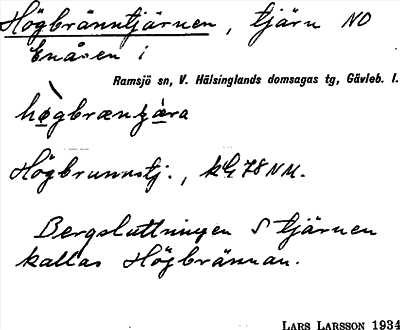 Högbränntjärnen, tjärn NO
Enåsen i
Ramsjö sn, V. Hälsinglands domsagas tg, Gävleb. l.
högbræntjæra
Högbrunnstj., 78 NU.
Bergsluttningen S tjärnen
kallas Högbrännan.
LARS LARSSON 1934